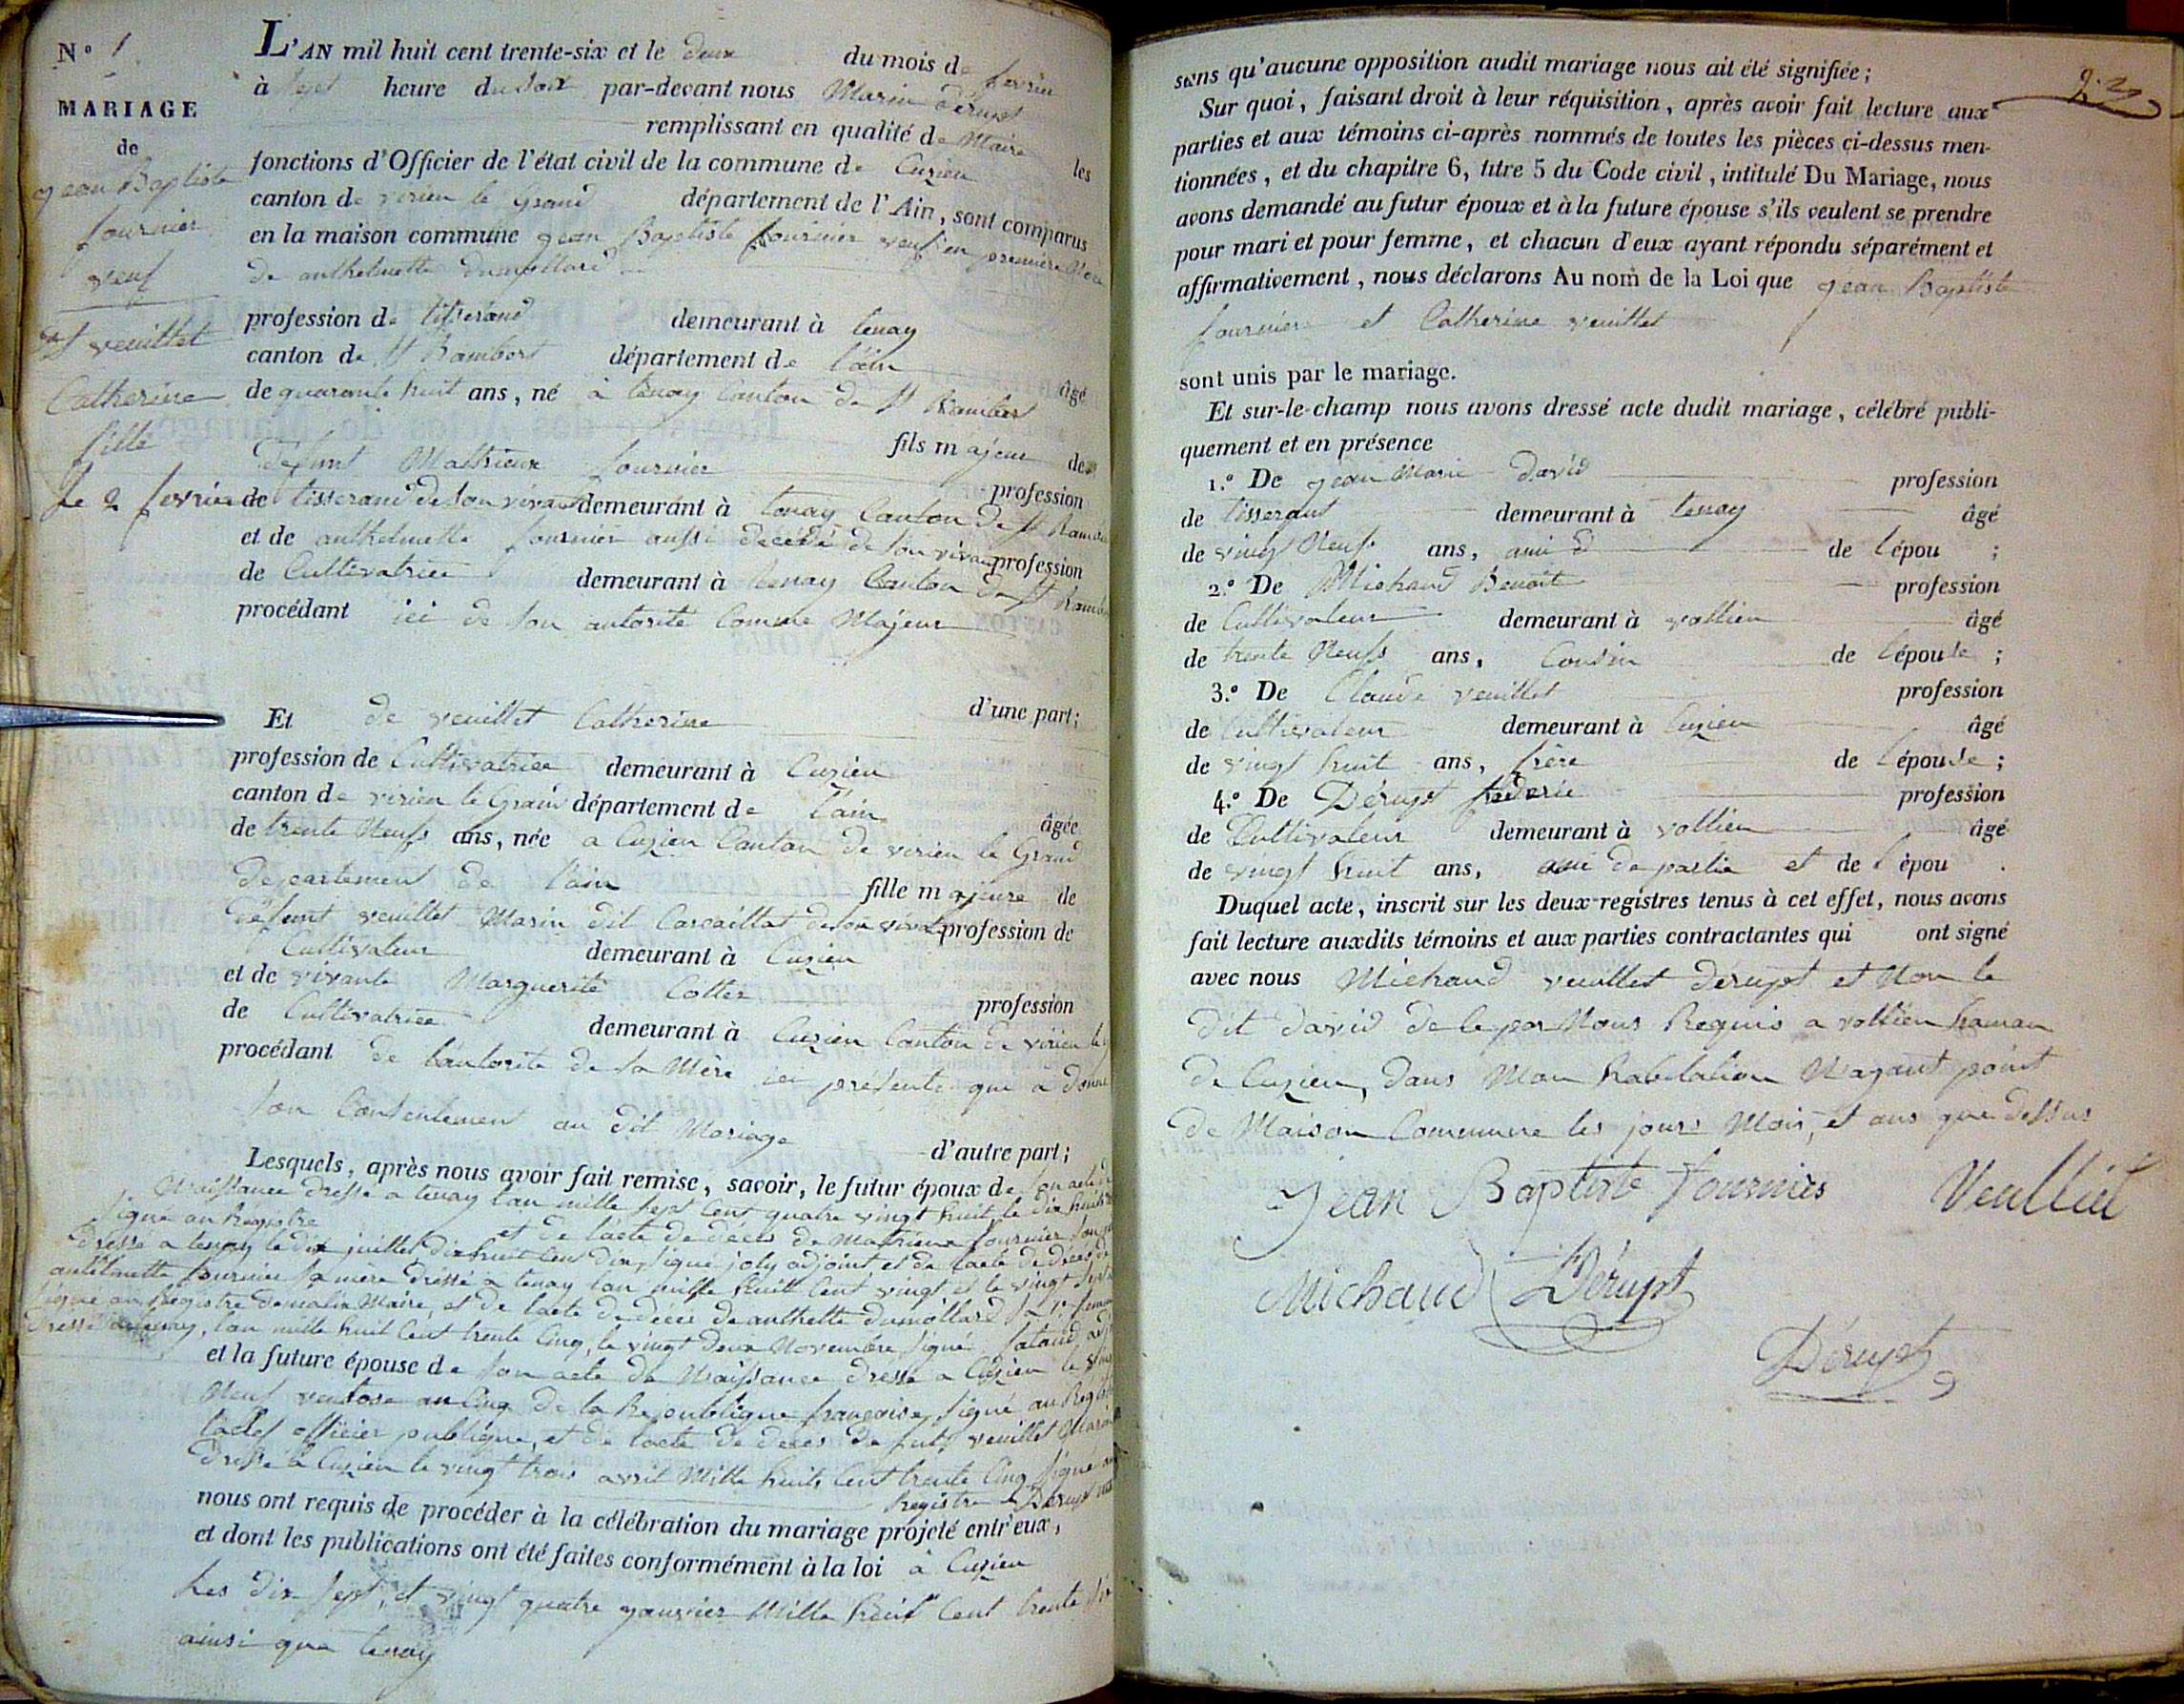 N° 1
MARIAGE
de
jean Baptiste
fournier
veuf
et veuillet
Catherine
fille
Le 2 fevrier
L'AN mil huit cent trente-six et le deux du mois de fevrier
à sept heure du soir par-devant nous Marin Dérupt
remplissant en qualité de Maire les
fonctions d'Officier de l'état civil de la commune de Cuzieu
canton de virieu le Grand département de l'Ain, sont comparus
en la maison commune jean Baptiste fournier veuf en premiere Noce
de anthelmette dumollard
profession de tisserand demeurant à tenay
canton de St Rambert département de l'ain âgé
de quarante huit ans, né à tenay Canton de St Rambert
fils majeur de
défunt Mathieux fournier profession
de tisserand de son vivant demeurant à tenay Canton de St Rambert
et de anthelmette fournier aussi decédé de son vivant profession
de Cultivatrice demeurant à tenay Canton de St Rambert
procédant ici de son autorité Comme Majeur
d'une part;
Et de veuillet Catherine
profession de Cultivatrice demeurant à Cuzieu
canton de virieu le Grand département de l'ain âgée
de trente Neufs ans, née a Cuzieu Canton de virieu le Grand
departement de l'ain fille majeure de
défunt veuillet Marin dit Carcaillat de son vivant profession de
Cultivateur demeurant à Cuzieu
et de vivante Marguerite Cottex profession
de Cultivatrice demeurant à Cuzieu Canton de virieu le g
procédant de l'autorité de sa Mère ici présente qui a donné
son Consentement au dit Mariage
d'autre part;
Lesquels, après nous avoir fait remise, savoir, le futur époux de son acte de
Naissance dressé a tenay l'an mille sept Cent quatre vingt huit le dix huit
signé au Registre et de l'acte de décès de Mathieux fournier son
dressé a tenay le dix juillet dix huit Cent dix, signé joly adjoint et de l'acte de décès de
antelmette fournier sa mère dressé a tenay l'an mille huit Cent vingt et le vingt sept
signé au Registre Maire, et de l'acte de décès de anthelmette dumollard sa 1re femme
dressé a tenay, l'an mille huit Cent trente Cinq, le vingt deux Novembre signé adj
et la future épouse de son acte de Naissance dressé a Cuzieu le vingt
Neuf ventose an Cinq de la République françoise, signé au Registre
officier publique, et de l'acte de deces de veuillet Marin
dressé a Cuzieu le vingt trois avril Mille huit Cent trente Cinq signé au
Registre Dérupt
nous ont requis de procéder à la célébration du mariage projeté entr'eux,
et dont les publications ont été faites conformément à la loi à Cuzieu
Les dix sept, et vingt quatre janvier Mille huit Cent trente six
ainsi que tenay
sans qu'aucune opposition audit mariage nous ait été signifiée;
Sur quoi, faisant droit à leur réquisition, après avoir fait lecture aux
parties et aux témoins ci-après nommés de toutes les pièces ci-dessus men-
tionnées, et du chapitre 6, titre 5 du Code civil, intitulé Du Mariage, nous
avons demandé au futur époux et à la future épouse s'ils veulent se prendre
pour mari et pour femme, et chacun d'eux ayant répondu séparément et
affirmativement, nous déclarons Au nom de la Loi que jean Baptiste
fournier et Catherine veuillet
sont unis par le mariage.
Et sur-le-champ nous avons dressé acte dudit mariage, célébré publi-
quement et en présence
1.° De jean Marie David profession
de tisserant demeurant à tenay âgé
de vingt Neufs ans, ami de l'épou ;
2.° De Michaud Benoit profession
de Cultivateur demeurant à vollien âgé
de trente Neufs ans, Cousin de l'épouse ;
3.° De Claude veuillet profession
de Cultivateur demeurant à Cuzieu âgé
de vingt huit ans, frère de l'épouse ;
4.° De Dérupt frederic profession
de Cultivateur demeurant à vollien âgé
de vingt huit ans, ami de partie et de l'épou .
Duquel acte, inscrit sur les deux registres tenus à cet effet, nous avons
fait lecture auxdits témoins et aux parties contractantes qui ont signé
avec nous Michaud veuillet Dérupt et Non le
dit david de le par Nous Requis a vollien hamau
de Cuzieu, dans Mon habitation Nayant point
de Maison Commune les jours Mois, et ans que dessus
Jean Baptiste fournier Veulliet
Michaud Dérupt
Dérupt